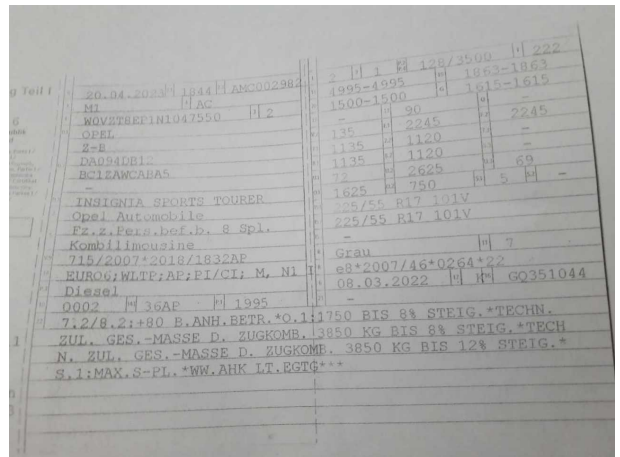 g Teil I
20.04.2023 1844 AMC002982
M1 AC
W0VZT8EP1N1047550 2
OPEL
Z-B
DA094DB12
BC1ZAWCABA5
-
INSIGNIA SPORTS TOURER
Opel Automobile
Fz.z.Pers.bef.b. 8 Spl.
Kombilimousine
715/2007*2018/1832AP
EURO6;WLTP;AP;PI/CI; M, N1 I
Diesel
0002 36AP 1995
2 1 128/3500 222
4995-4995 1863-1863
1500-1500 1615-1615
- 90 -
135 2245 2245
1135 1120 -
1135 1120 -
72 2625 69
1625 750 5 -
225/55 R17 101V
225/55 R17 101V
-
Grau 7
e8*2007/46*0264*22
08.03.2022 K GQ351044
-
7.2/8.2:+80 B.ANH.BETR.*O.1:1750 BIS 8% STEIG.*TECHN.
ZUL. GES.-MASSE D. ZUGKOMB. 3850 KG BIS 8% STEIG.*TECH
N. ZUL. GES.-MASSE D. ZUGKOMB. 3850 KG BIS 12% STEIG.*
S.1:MAX.S-PL.*WW.AHK LT.EGTG***